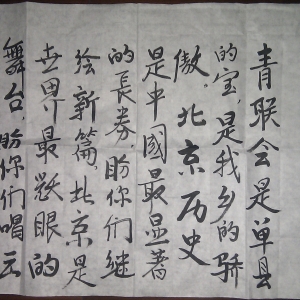 青联会是单县
的宝,是我乡的骄
傲,北京历史
是中國最显著
的長券,盼你们继
绘新篇,北京是
世界最耀眼的
舞台,盼你们唱云